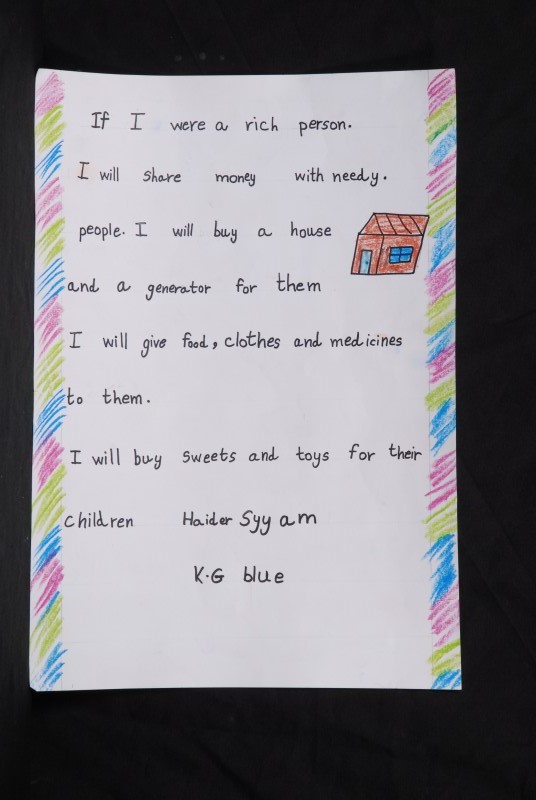 If I were a rich person.
I will share money with needy.
people. I will buy a house
and a generator for them
I will give food, clothes and medicines
to them.
I will buy sweets and toys for their
children Haider Syyam
K.G blue